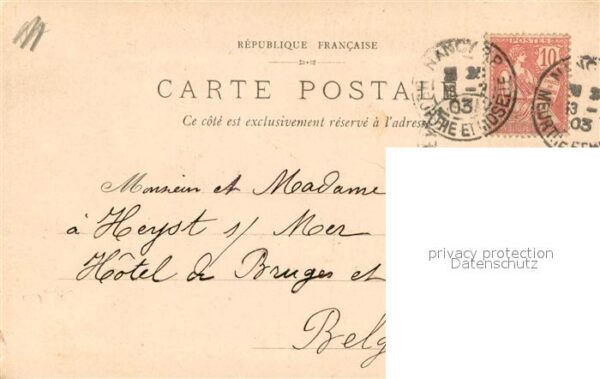 RÉPUBLIQUE FRANÇAISE
CARTE POSTALE
Ce côté est exclusivement réservé à l'adresse
10
NANCY
MEURTHE ET MOSELLE
03
03
Monsieur et Madame
à Heyst s/ Mer
Hôtel de Bruges et
Belg
privacy protection
Datenschutz